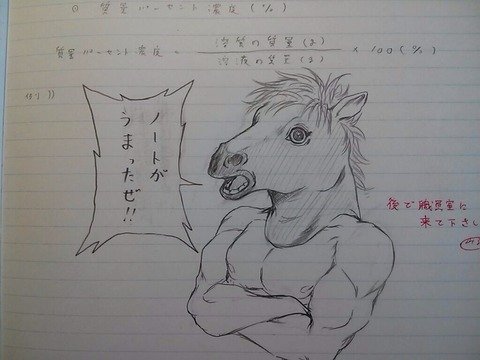 ◎ 質量パーセント濃度 (%)
質量パーセント濃度 = 溶質の質量 (g) / 溶液の質量 (g) × 100 (%)
例))
ノートが
うまったぜ!!
後で職員室に
来て下さい